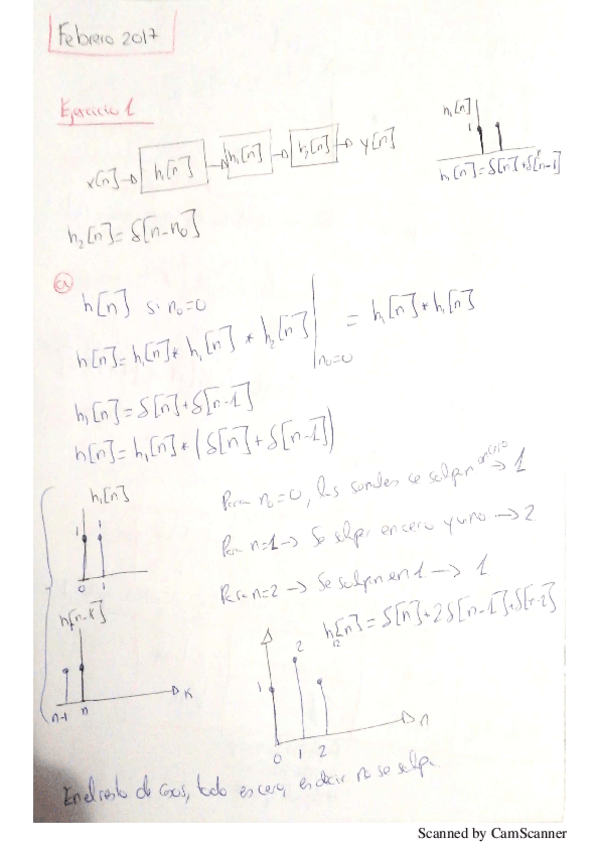 Febrero 2017
Ejercicio 1
x[n] → h₁[n] → h₁[n] → h₂[n] → y[n]
h₁[n]
1
h₁[n]=δ[n]+δ[n-1]
h₂[n]=δ[n-n₀]
a
h[n] si n₀=0
h[n]=h₁[n]*h₁[n]*h₂[n]|n₀=0 = h₁[n]*h₁[n]
h₁[n]=δ[n]+δ[n-1]
h[n]=h₁[n]*(δ[n]+δ[n-1])
h₁[n]
1 1
0 1
h[n-k]
n-1 n K
Para n₀=0, las se solpan en cero → 1
Para n=1 → Se solpan en cero y uno → 2
Para n=2 → Se solpan en 1 → 1
h₁₂[n]=δ[n]+2δ[n-1]+δ[n-2]
2
1
0 1 2 n
En el resto de casos, todo es cero, es decir no se solpa.
Scanned by CamScanner